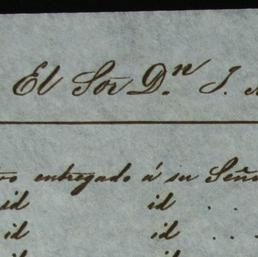 El Sor Dn J.
entregado á su Seño
id id . .
id id . . .
id